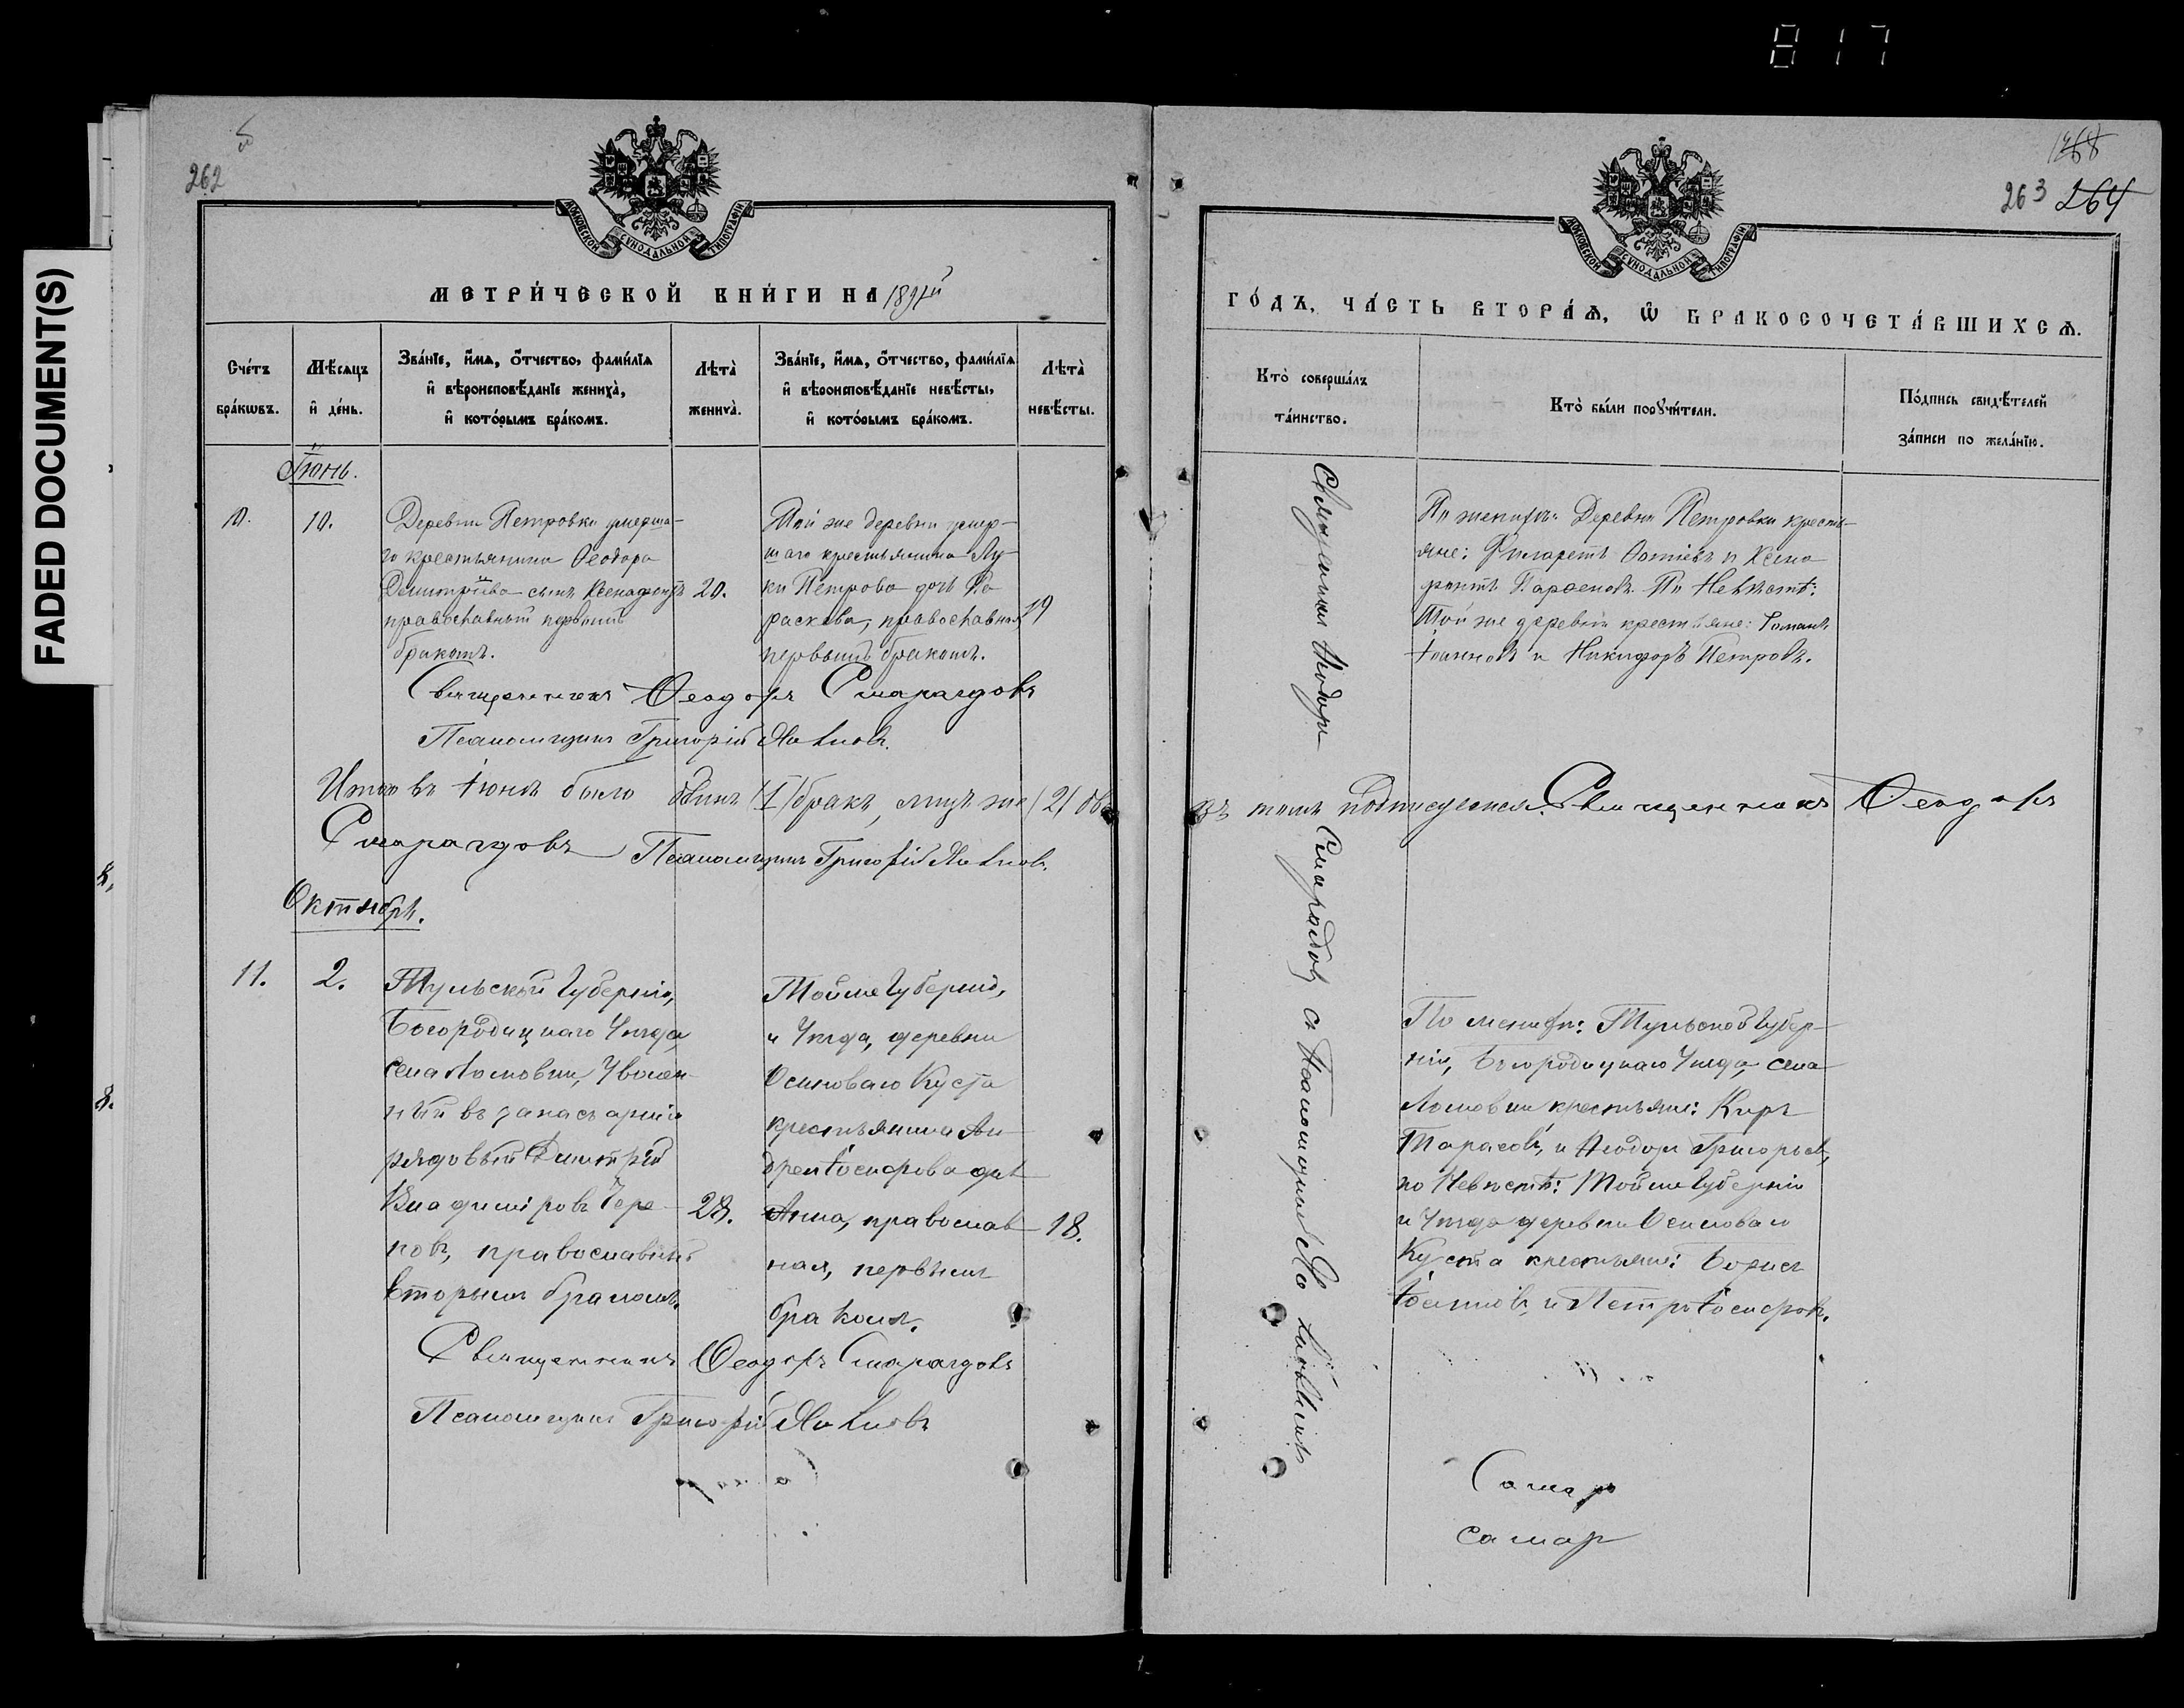 817
FADED DOCUMENT(S)
262
263 264
МОСКОВСКОЙ СУНОДАЛЬНОЙ ТИПОГРАФІИ
МОСКОВСКОЙ СУНОДАЛЬНОЙ ТИПОГРАФІИ
МЕТРИ́ЧЕСКОЙ КНИ́ГИ НА
ГО́ДЪ, ЧА́СТЬ ВТОРА́Ѧ, Ѡ҆ БРАКОСОЧЕТА́ВШИХСѦ.
Сче́тъ
бра́кѡвъ.
Мѣ́сяцъ
и҆ де́нь.
Зва́нїе, и҆́мѧ, ѻ҆́тчество, фами́лїѧ
и҆ вѣроисповѣ́данїе жениха̀,
и҆ кото́рымъ бра́комъ.
Лѣ́та̀
жениха̀.
Зва́нїе, и҆́мѧ, ѻ҆́тчество, фами́лїѧ
и҆ вѣроисповѣ́данїе невѣ́сты,
и҆ кото́рымъ бра́комъ.
Лѣ́та̀
невѣ́сты.
Кто̀ соверша́лъ
та́инство.
Кто̀ бы́ли порꙋчи́тели.
По́дпись свидѣ́телей
за́писи по жела́нїю.
Іюнь.
10.
10.
Деревни Петровки умерша-
го крестьянина Ѳеодора
Димитріева сынъ Ксенофонтъ
православный первымъ
бракомъ.
20.
Той же деревни умер-
шаго крестьянина Лу-
ки Петрова дочь Па-
раскева, православная
первымъ бракомъ.
19
По женихѣ: Деревни Петровки кресть-
яне: Филаретъ Фотіевъ и Ксено-
фонтъ Парѳеновъ. По Невѣстѣ:
Той же деревни крестьяне: Романъ
Іоанновъ и Никифоръ Петровъ.
Священникъ Ѳеодоръ Смарагдовъ
Псаломщикъ Григорій
Итого въ Іюнѣ было одинъ (1) бракъ, лицъ же (2) два
въ томъ подписуемся. Священникъ Ѳеодоръ
Смарагдовъ Псаломщикъ Григорій
Священникъ Ѳеодоръ Смарагдовъ съ Псаломщикомъ
Октябрь.
11.
2.
Тульской Губерніи,
Богородицкаго Уѣзда,
села Ломовки, Уволен-
ный въ запасъ арміи
рядовый Димитрій
Владиміровъ Чере-
повъ, православный
вторымъ бракомъ.
28.
Той же Губерніи,
и Уѣзда, деревни
Осиноваго Куста
крестьянина Ан-
дрея Іосифова дочь
Анна, православ-
ная, первымъ
бракомъ.
18.
По женихѣ: Тульской Губер-
ніи, Богородицкаго Уѣзда, села
Ломовки крестьяне: Киръ
Тарасовъ, и Ѳеодоръ Григорьевъ,
по Невѣстѣ: Той же Губерніи
и Уѣзда деревни Осиноваго
Куста крестьяне: Борисъ
Іоанновъ, и Петръ Іосифовъ.
Священникъ Ѳеодоръ Смарагдовъ
Псаломщикъ Григорій